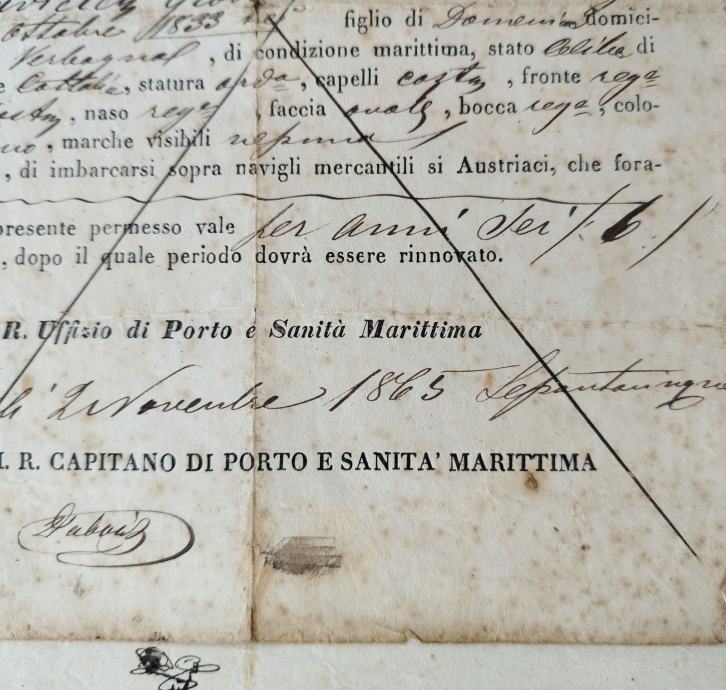 ottobre 1833 figlio di Domenico domici-
Verbagnal, di condizione marittima, stato Celibe di
e Cattolica, statura orda, capelli castni, fronte rega
naso rega, faccia ovale, bocca rega, colo-
, marche visibili nessuna
, di imbarcarsi sopra navigli mercantili si Austriaci, che fora-
presente permesso vale per anni Sei /: 6 :/
, dopo il quale periodo dovrà essere rinnovato.
R. Uffizio di Porto e Sanità Marittima
li 2 Novembre 1865 Sessantacinque
I. R. CAPITANO DI PORTO E SANITA' MARITTIMA